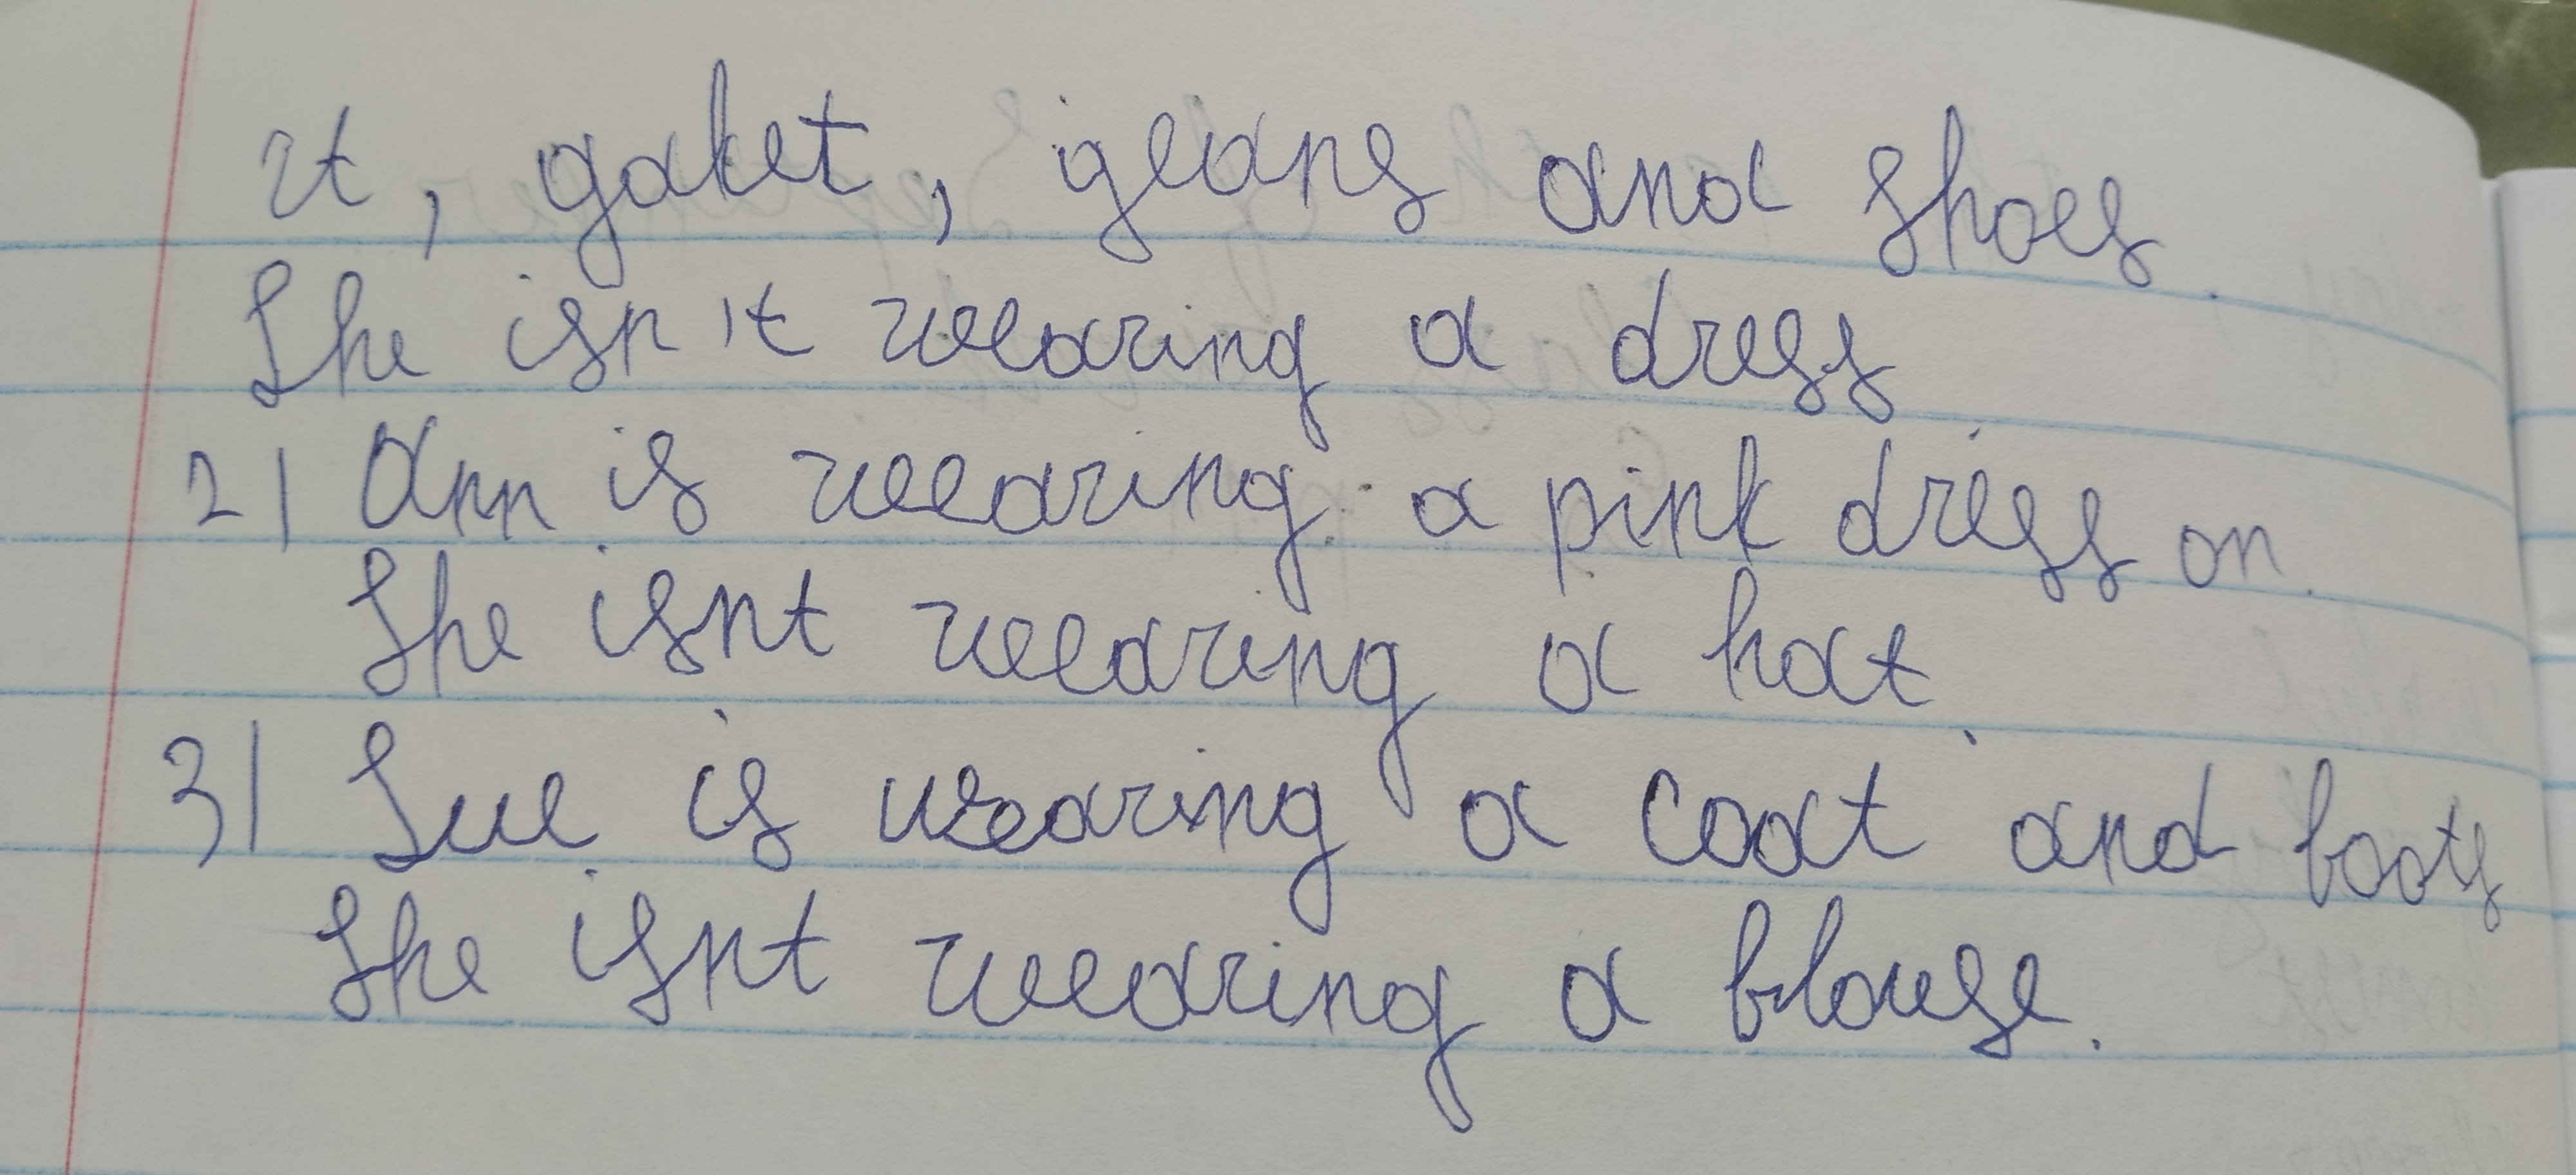 rt, gaket, geans and shoes.
She isn't wearing a dress
2) Ann is wearing a pink dress on.
She isnt wearing a hat.
3) Sue is wearing a coat and boots
She isnt wearing a blouse.